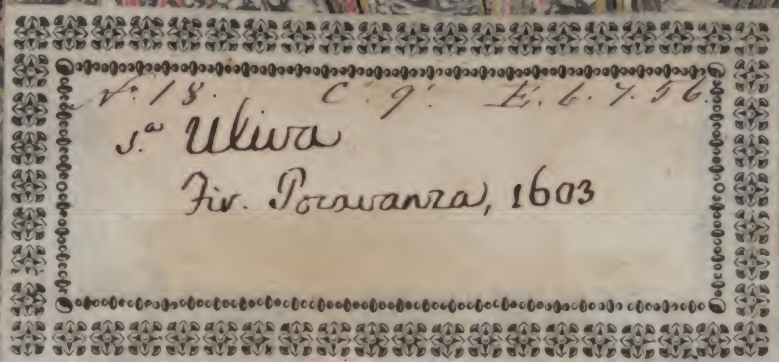 N.° 18. C. 9. E. 6. 7. 56.
S.ª Uliva
Fir. Pocavanza, 1603